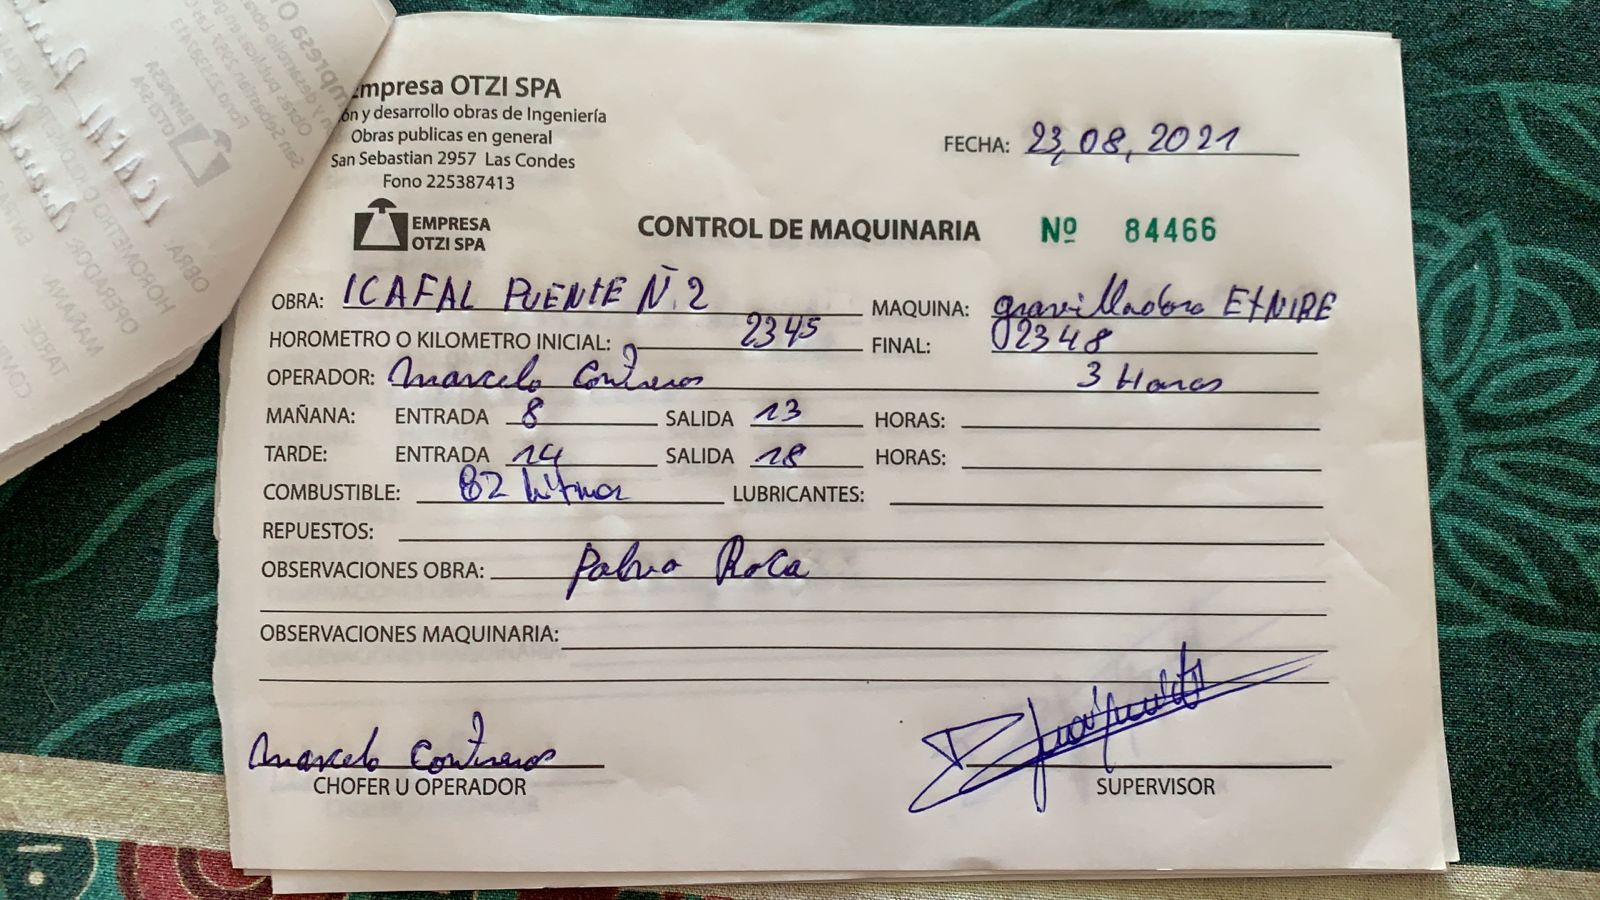 Empresa OTZI SPA
ón y desarrollo obras de Ingeniería
Obras publicas en general
San Sebastian 2957 Las Condes
Fono 225387413
FECHA: 23,08,2021
EMPRESA
OTZI SPA
CONTROL DE MAQUINARIA Nº 84466
OBRA: ICAFAL PUENTE N.2 MAQUINA: gravilladora ETNIRE
HOROMETRO O KILOMETRO INICIAL: 2345 FINAL: 02348
OPERADOR: Marcelo Contreras 3 Horas
MAÑANA: ENTRADA 8 SALIDA 13 HORAS:
TARDE: ENTRADA 14 SALIDA 18 HORAS:
COMBUSTIBLE: 82 Litros LUBRICANTES:
REPUESTOS:
OBSERVACIONES OBRA: Polvo Roca
OBSERVACIONES MAQUINARIA:
Marcelo Contreras
CHOFER U OPERADOR
SUPERVISOR